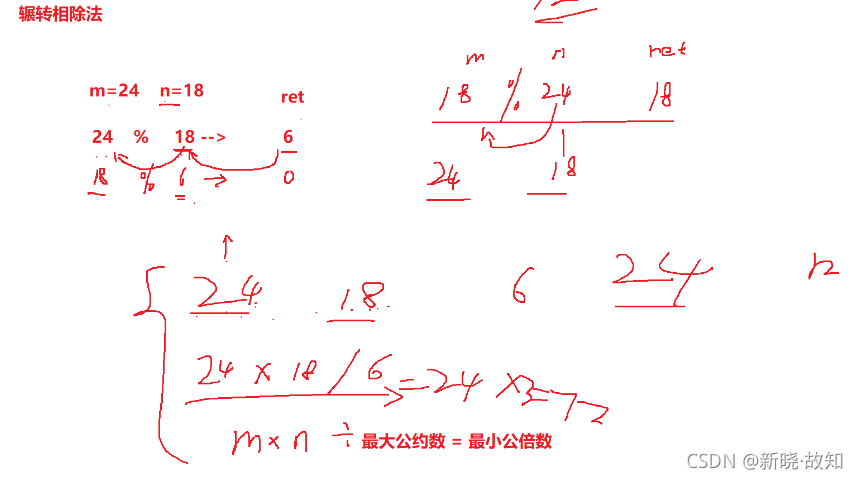 辗转相除法
m=24 n=18 ret
24 % 18 --> 6
18 % 6 → 0
m n ret
18 % 24 18
24 18
24 18 6 24 n
24 × 18 / 6 = 24 × 3 = 72
m × n ÷ 最大公约数 = 最小公倍数
CSDN @新晓·故知